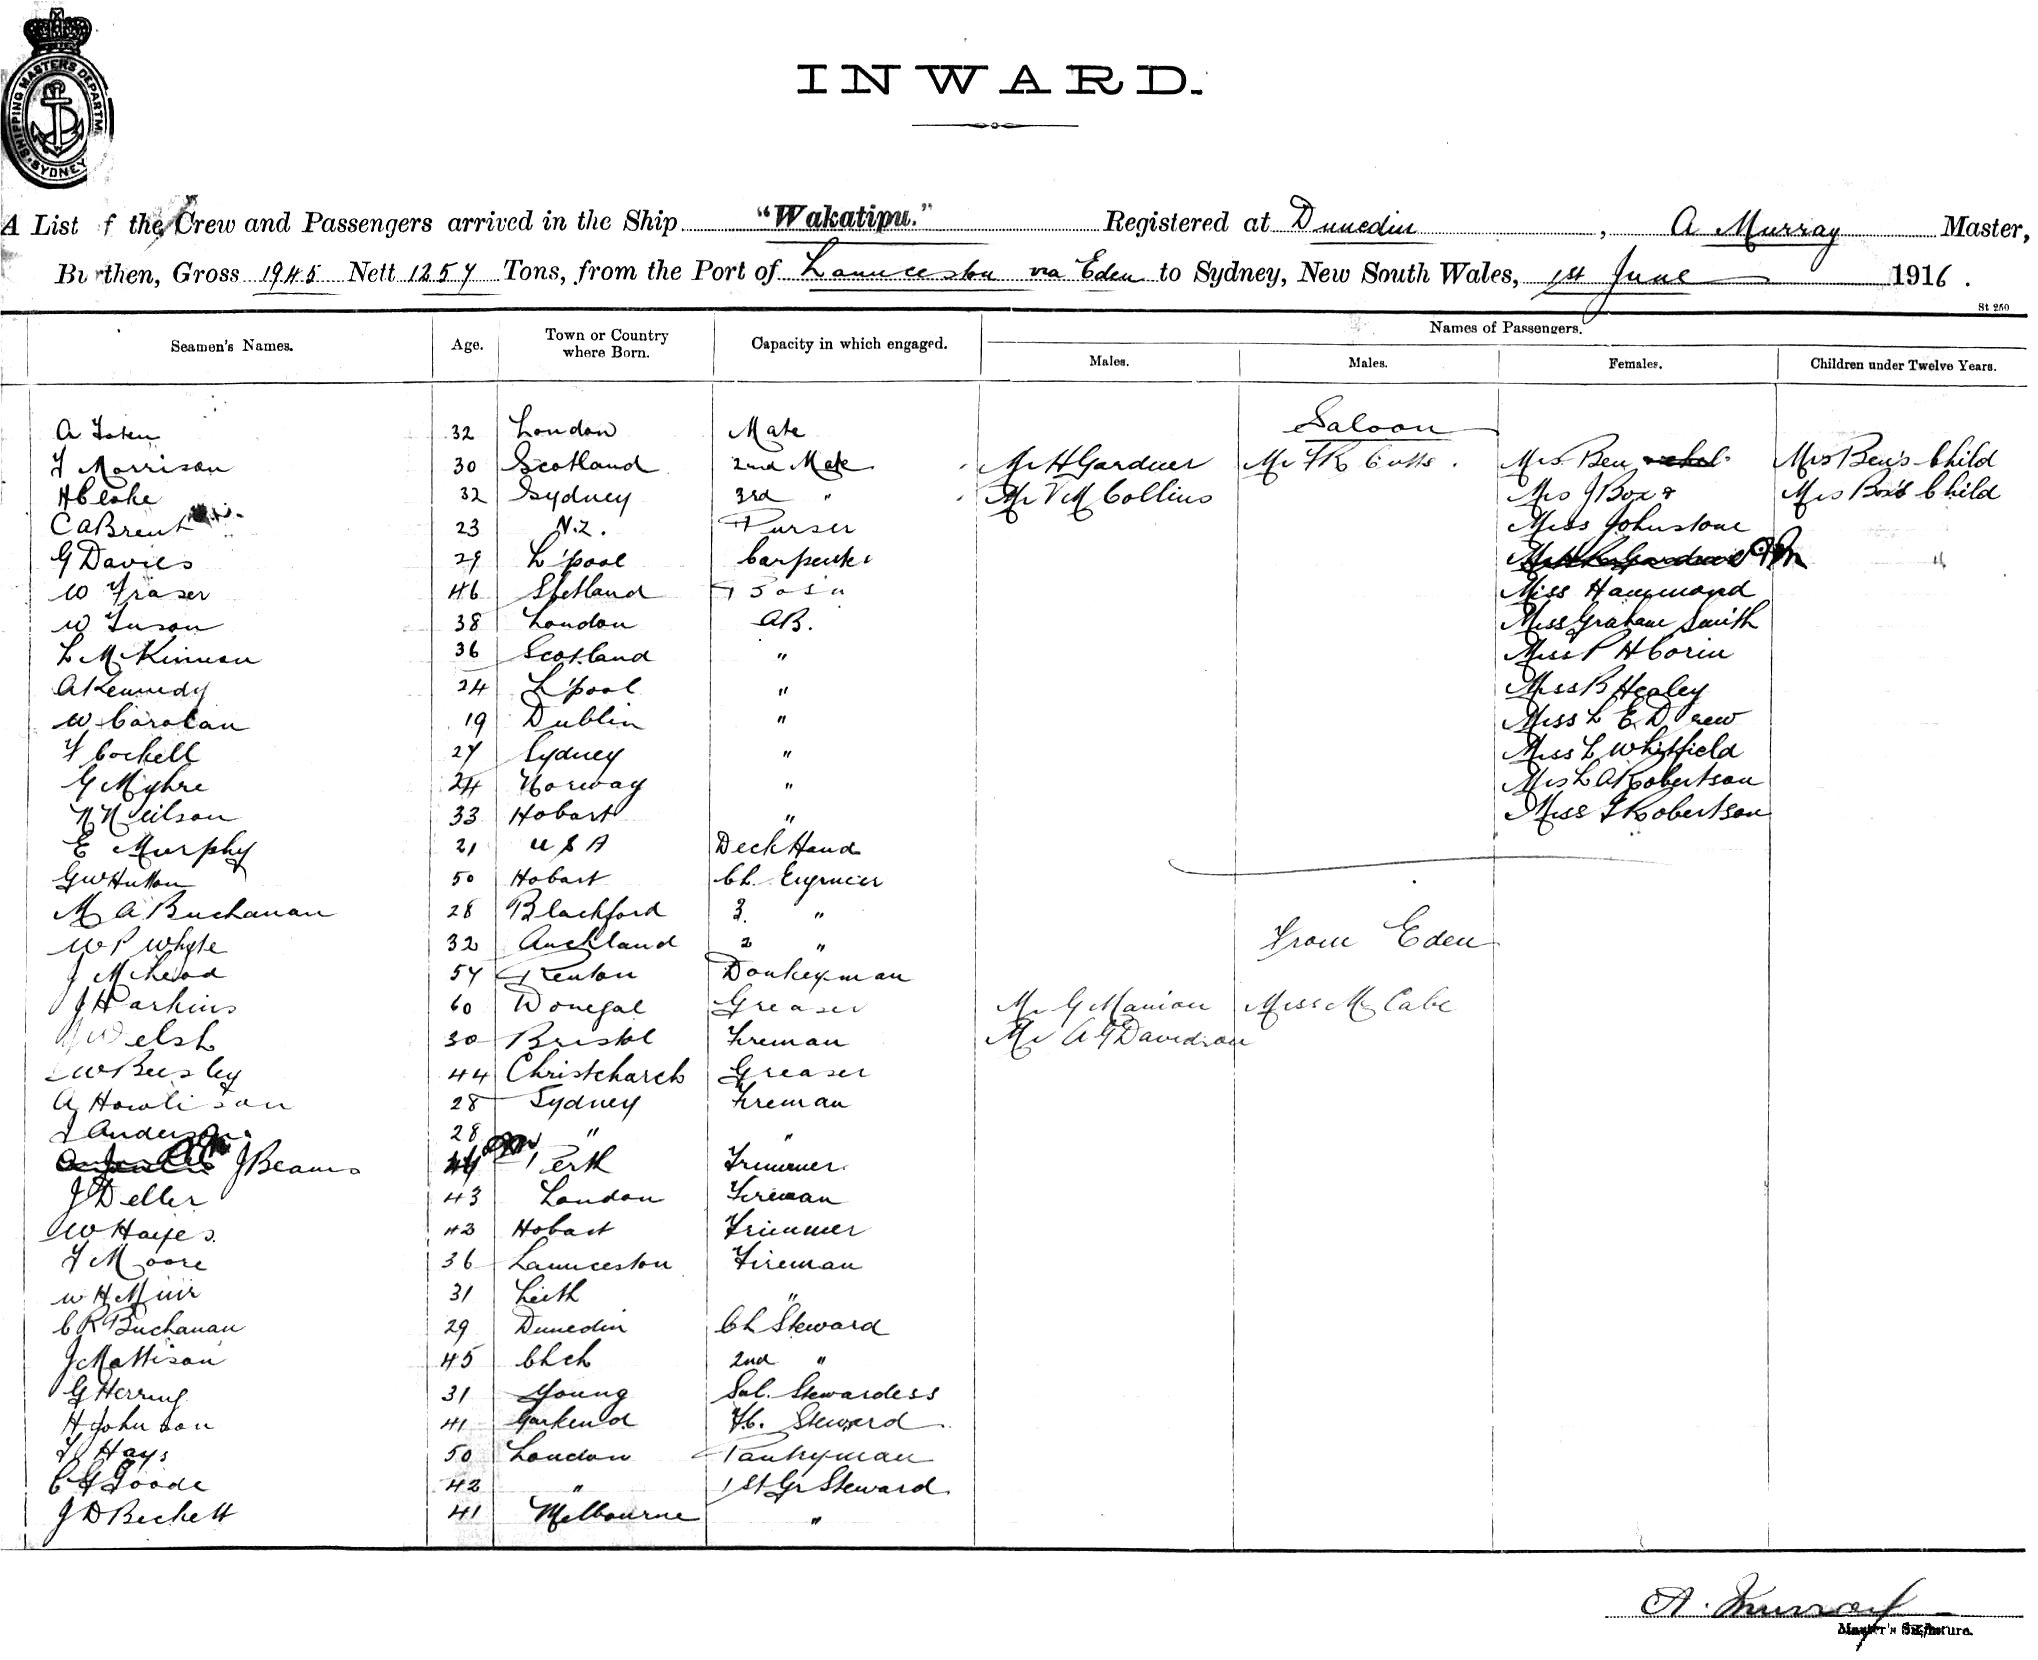 SHIPPING MASTERS DEPARTM SYDNEY
INWARD.
A List f the Crew and Passengers arrived in the Ship "Wakatipu." Registered at Dunedin, A Murray Master,
Burthen, Gross 1945 Nett 1257 Tons, from the Port of Launceston via Eden to Sydney, New South Wales, 1st June 1916.
St 250
Seamen's Names. Age. Town or Country where Born. Capacity in which engaged. Names of Passengers.
Males. Males. Females. Children under Twelve Years.
Saloon
A 32 London Mate
F Morrison 30 Scotland 2nd Mate Mr H Gardner Mr F R Cutts. Mrs Ben Mrs Ben's Child
H Clake 32 Sydney 3rd " Mr V M Collins Mrs J Box & Mrs Box's Child
C A Brent 23 N.Z. Purser Miss Johnstone
G Davies 29 L'pool Carpenter
W Fraser 46 Shetland Bosn Miss Hammond
W Tuson 38 London AB. Miss Graham Smith
L McKinnon 36 Scotland " Miss P H Corin
A Kennedy 24 L'pool " Miss B Healey
W Carolan 19 Dublin " Miss L E Drew
F Cockell 27 Sydney " Miss L Whitfield
G Myhre 24 Norway " Miss L A Robertson
N Neilson 33 Hobart " Miss J Robertson
E Murphy 21 U S A Deck Hand
G W Hutton 50 Hobart Ch. Engineer
M A Buchanan 28 Blackford 3. "
W P Whyte 32 Auckland 2 " From Eden
J McLeod 57 Renton Donkeyman
J Harkins 60 Donegal Greaser Mr G Manion Miss McCabe
J Welsh 30 Bristol Fireman Mr A G Davidson
W Beesley 44 Christchurch Greaser
A Howlison 28 Sydney Fireman
J Anderson. 28 " "
J Beams Perth Trimmer
J Deller 43 London Fireman
W Hayes. 43 Hobart Trimmer
F Moore 36 Launceston Fireman
W H Muir 31 Leith "
C R Buchanan 29 Dunedin Ch Steward
J Mattison 45 Chch 2nd "
G Herring 31 Young Sal. Stewardess
H Johnson 41 F.C. Steward
F Hays 50 London Pantryman
C G Goode 42 " 1st Gr Steward
J D Beckett 41 Melbourne "
A. Murray
Master's Signature.